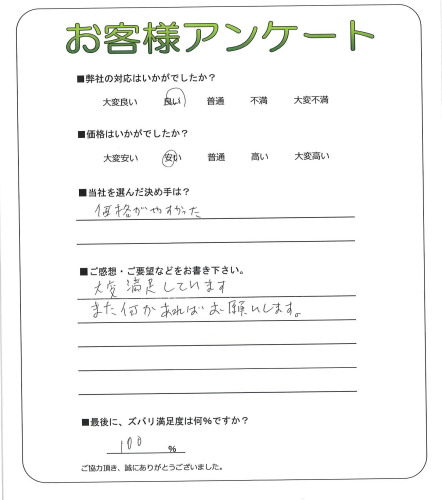 お客様アンケート
■弊社の対応はいかがでしたか?
大変良い 良い 普通 不満 大変不満
■価格はいかがでしたか?
大変安い 安い 普通 高い 大変高い
■当社を選んだ決め手は?
価格がやすかった
■ご感想・ご要望などをお書き下さい。
大変満足しています
また何かあればお願いします。
■最後に、ズバリ満足度は何%ですか?
100 %
ご協力頂き、誠にありがとうございました。